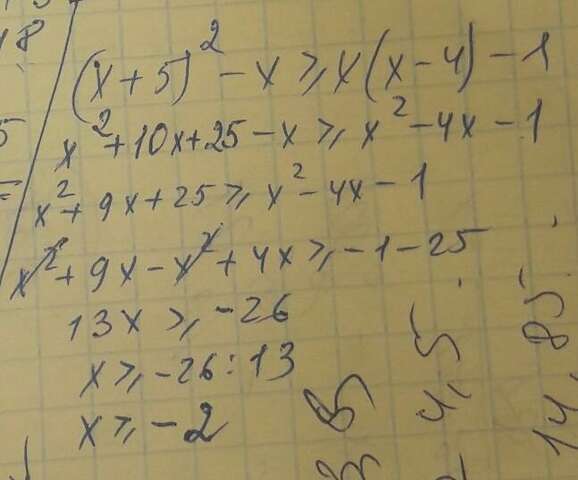 18
(x+5)² - x ⩾ x(x-4) - 1
x² + 10x + 25 - x ⩾ x² - 4x - 1
5
x² + 9x + 25 ⩾ x² - 4x - 1
x² + 9x - x² + 4x ⩾ -1 - 25
13x ⩾ -26
x ⩾ -26 : 13
x ⩾ -2
4,5
14,85